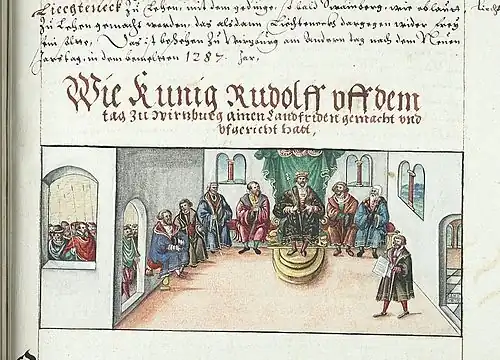 Liechteneck zu Lehen, mit dem gedinge, ist bald
zu Lehen gemacht werden, das als dann Liechteneck dargegen wider frey
sein solte, Das ist beschehen zu Wirzburg am andern tag nach dem Neuen
Jarstag, in dem bemelten 1287. Jar.
Wie Kunig Rudolff vff dem
tag zu wirtzburg ainen Landfriden gemacht vnd
vfgericht hatt,